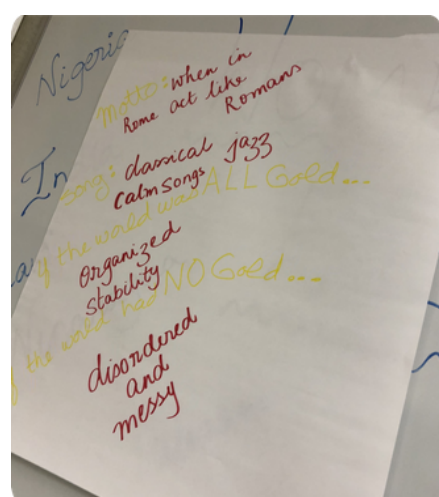 Nigeria
Motto: when in
Rome act like
Romans
In
Song: classical jazz
calm songs
if the world was ALL Gold...
organized
stability
the world had NO Gold...
disordered
and
messy